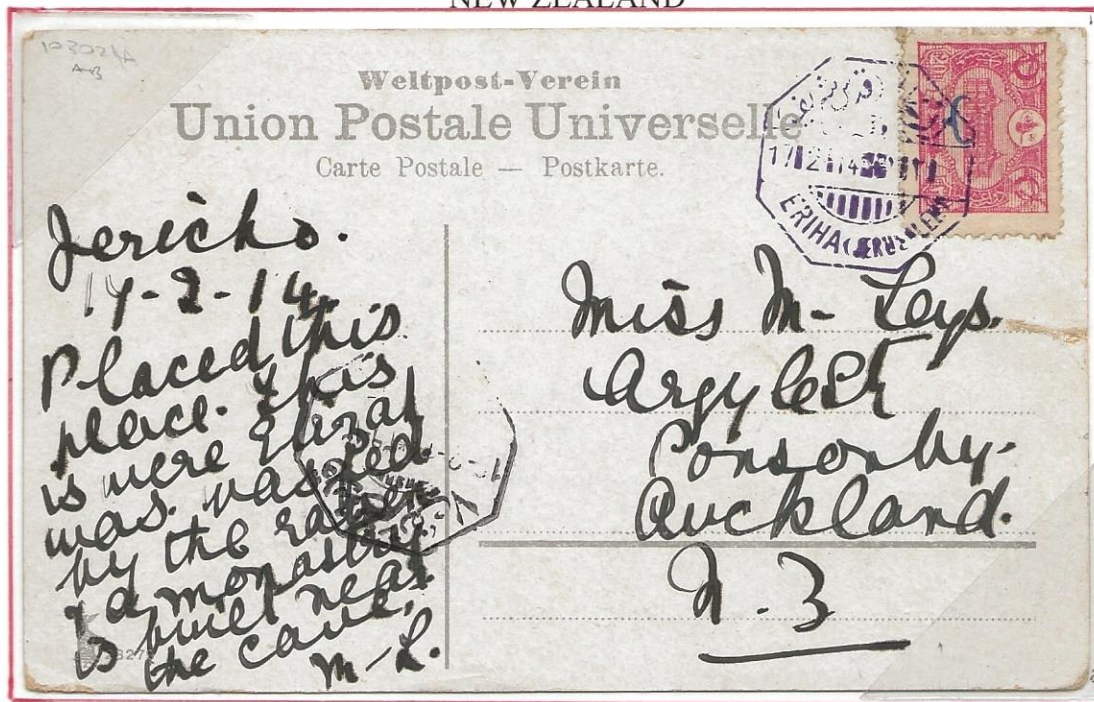 NEW ZEALAND
Weltpost-Verein
Union Postale Universelle
Carte Postale — Postkarte.
ERIHA (JERUSALEM)
Jericho.
17-2-14.
Placed this
place. this
is were Elizah
was.
by the
& a monastry
is built near
the cave.
M-L.
Miss M- Leys.
Argyle St
Ponsonby.
Auckland.
N.Z